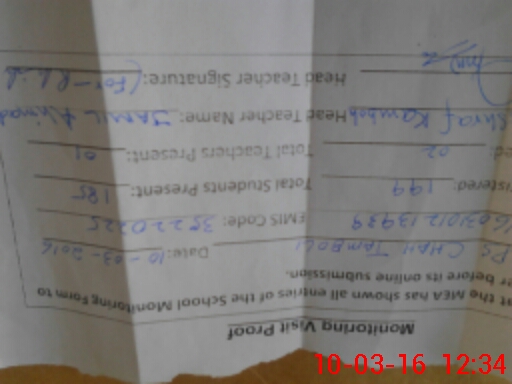 Monitoring Visit Proof
t the MEA has shown all entries of the School Monitoring Form to
r before its online submission.
PS CHAH TAMBOLI Date: 10-03-2016
EMIS Code: 35220225
istered: 199 Total Students Present: 185
ed: 02 Total Teachers Present: 01
Head Teacher Name: JAMIL Ahmad
Head Teacher Signature:
10-03-16 12:34